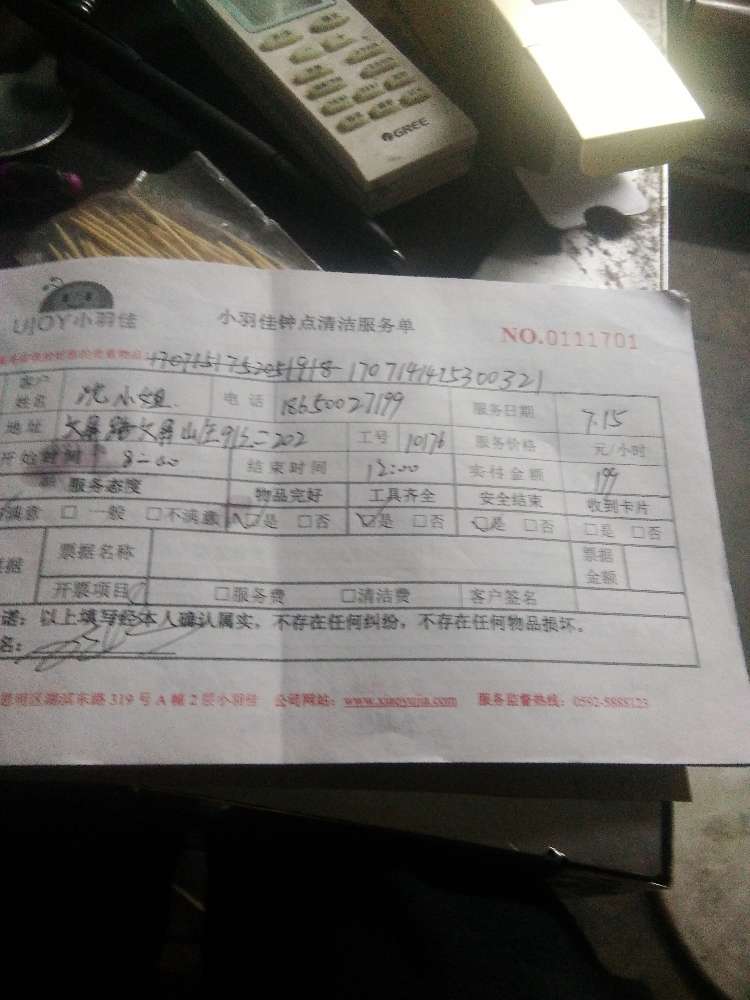 GREE
UJOY小羽佳 小羽佳钟点清洁服务单 NO.0111701
1707141425300321
客户姓名 沈小姐 电话 18650027199 服务日期 7.15
地址 工号 10176 服务价格 元/小时
开始时间 8:00 结束时间 12:00 实付金额 199
服务态度 物品完好 工具齐全 安全结束 收到卡片
满意 □ 一般 □不满意 □是 □否 □是 □否 □是 □否 □是 □否
票据名称 票据金额
开票项目 □服务费 □清洁费 客户签名
诺:以上填写经本人确认属实,不存在任何纠纷,不存在任何物品损坏。
名:
思明区湖滨东路319号A幢2层小羽佳 公司网站:www.xiaoyujia.com 服务监督热线:0592-5888123